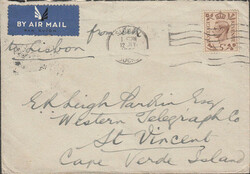 BY AIR MAIL
PAR AVION
from
to Lisbon
E. R. Leigh Pardin Esq
Western Telegraph Co
St Vincent
Cape Verde Island